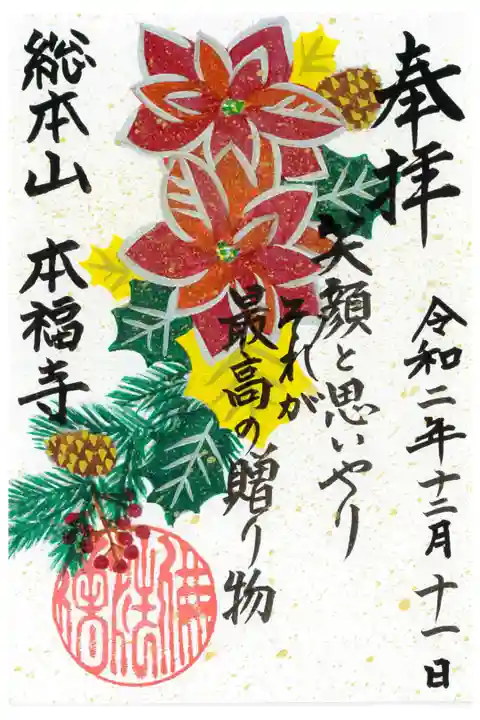 奉拝
令和二年十二月十一日
笑顔と思いやり
それが
最高の贈り物
総本山 本福寺
佛法僧寳